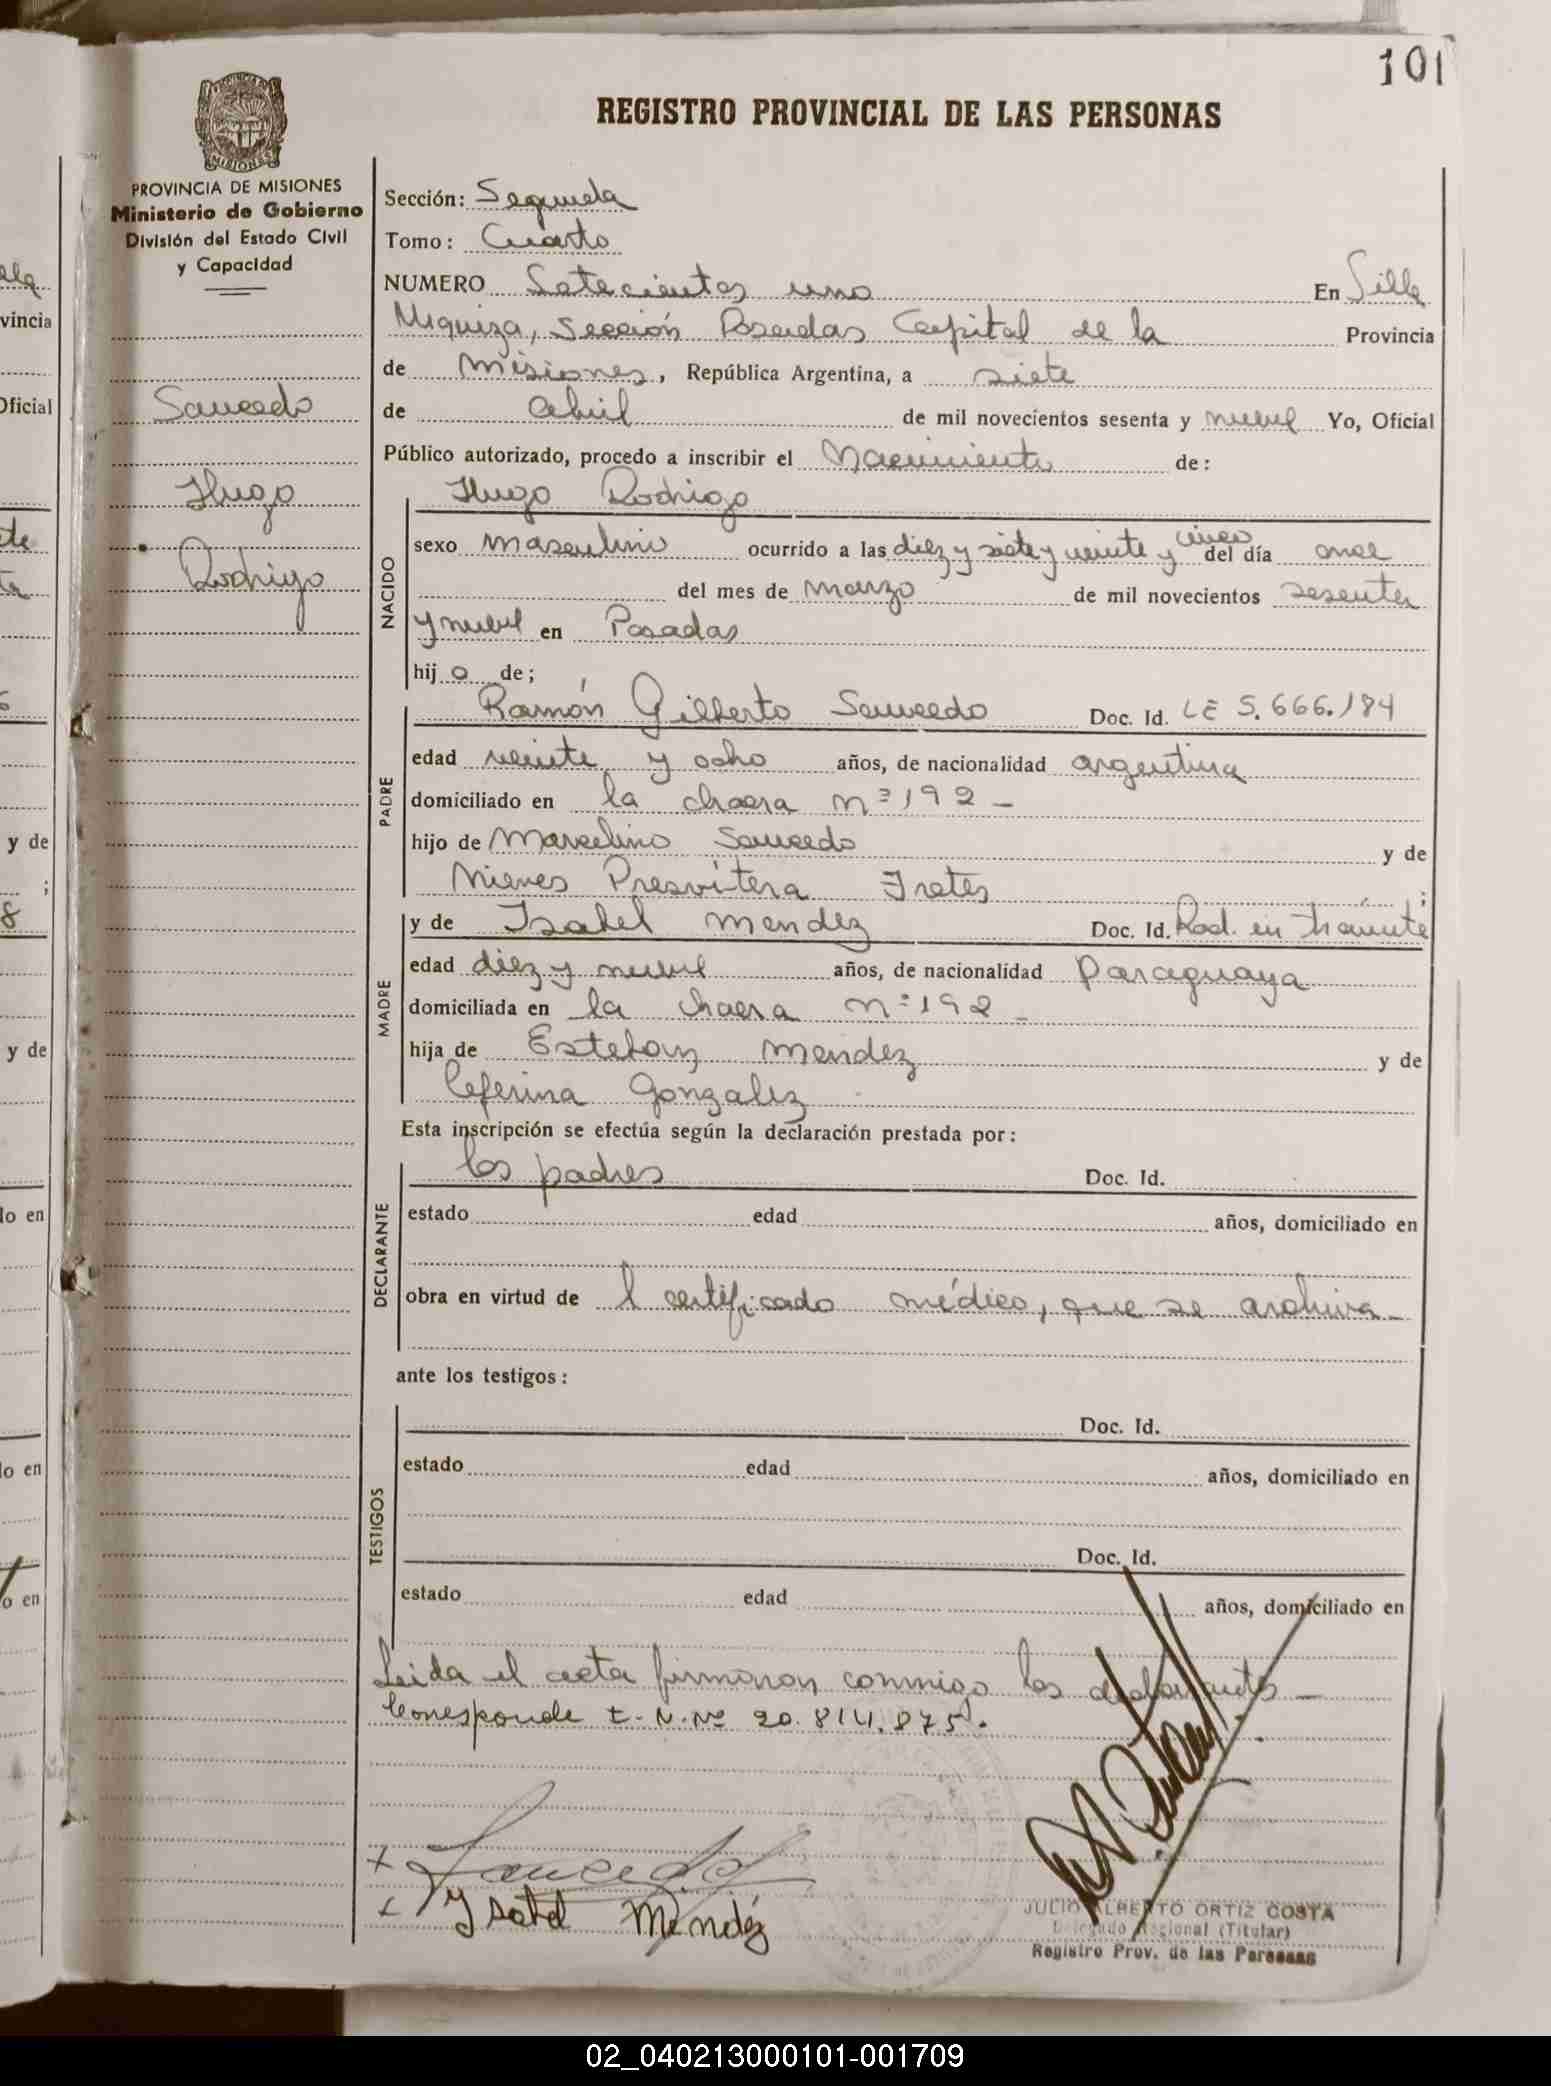 101
REGISTRO PROVINCIAL DE LAS PERSONAS
PROVINCIA DE MISIONES
Ministerio de Gobierno
División del Estado Civil
y Capacidad
Saucedo
Hugo
Rodrigo
Sección: Segunda
Tomo: Cuarto
NUMERO Setecientos uno En Villa
Urquiza, Sección Posadas Capital de la Provincia
de Misiones, República Argentina, a siete
de abril de mil novecientos sesenta y nueve Yo, Oficial
Público autorizado, procedo a inscribir el Nacimiento de:
NACIDO
Hugo Rodrigo
sexo masculino ocurrido a las diez y siete y veinte y cinco del día once
del mes de marzo de mil novecientos sesenta
y nueve en Posadas
hijo de;
PADRE
Ramón Gilberto Saucedo Doc. Id. LE 5.666.184
edad veinte y ocho años, de nacionalidad argentina
domiciliado en la chacra nº 192 -
hijo de Marcelino Saucedo y de
Nieves Presvítera Fretes ;
MADRE
y de Isabel Mendez Doc. Id. Rad. en trámite
edad diez y nueve años, de nacionalidad Paraguaya
domiciliada en la chacra nº 192 -
hija de Esteban Mendez y de
Ceferina Gonzalez
Esta inscripción se efectúa según la declaración prestada por:
DECLARANTE
los padres Doc. Id.
estado edad años, domiciliado en
obra en virtud de l certificado médico, que se archiva -
ante los testigos:
TESTIGOS
Doc. Id.
estado edad años, domiciliado en
Doc. Id.
estado edad años, domiciliado en
Leida el acta firmaron conmigo los declarantes -
Corresponde E. N. Nº 20.814.875.
Saucedo
Ysabel Mendéz
JULIO ALBERTO ORTIZ COSTA
Delegado Regional (Titular)
Registro Prov. de las Personas
02_040213000101-001709